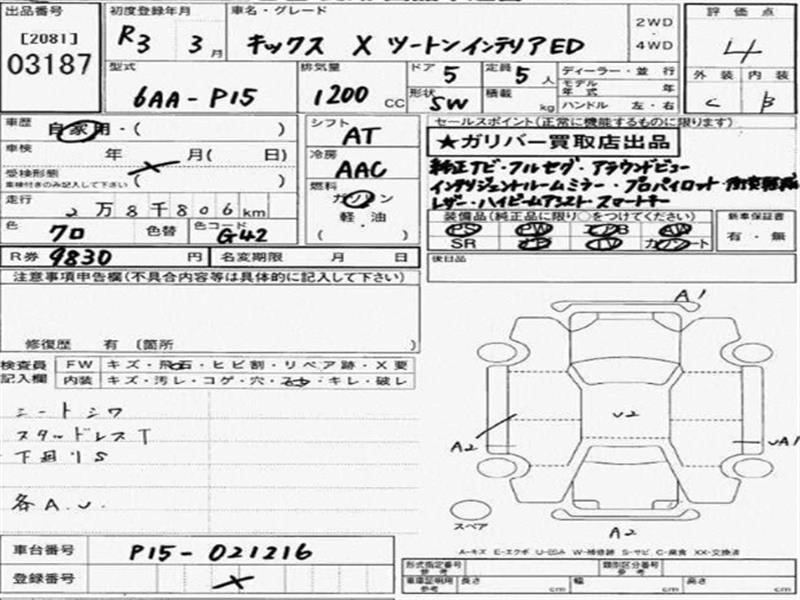 出品番号
[2081]
03187
初度登録年月
R3 3月
車名・グレード
キックス X ツートンインテリアED
2WD
・
4WD
評価点
4
外装 内装
C B
型式
6AA-P15
排気量
1200 CC
ドア 5
形状 SW
定員 5人
積載 kg
ディーラー・並行
モデル年式 年
ハンドル 左・右
車歴 自家用・( )
車検 年 月( 日)
受検形態
車検付きのみ記入して下さい ( )
走行
2万8千806km
色 クロ 色替
色コード G42
シフト
AT
冷房
AAC
燃料
ガソリン
軽・油
( )
セールスポイント(正常に機能するものに限ります)
★ガリバー買取店出品
純正ナビ・フルセグ・アラウンドビュー
インテリジェントルームミラー・プロパイロット・衝突軽減
レザー・ハイビームアシスト スマートキー
装備品(純正品に限り○をつけてください)
PS PW エアB AW
SR ナビ TV カワシート
新車保証書
有・無
R券 9830円
名変期限 月 日
後日品
注意事項申告欄(不具合内容等は具体的に記入して下さい)
修復歴 有 〔箇所 〕
検査員
記入欄
FW キズ・飛石・ヒビ割・リペア跡・X要
内装 キズ・汚レ・コゲ・穴・スレ・キレ・破レ
シートシワ
スタッドレスT
下廻りS
各A.U.
A1
A2
U2
UA1
A2
スペア
A-キズ E-エクボ U-凹み W-補修跡 S-サビ C-腐食 XX-交換済
車台番号 P15-021216
登録番号
形式指定番号
参考
類別区分番号
参考
車庫証明用
参考
長さ cm 幅 cm 高さ cm